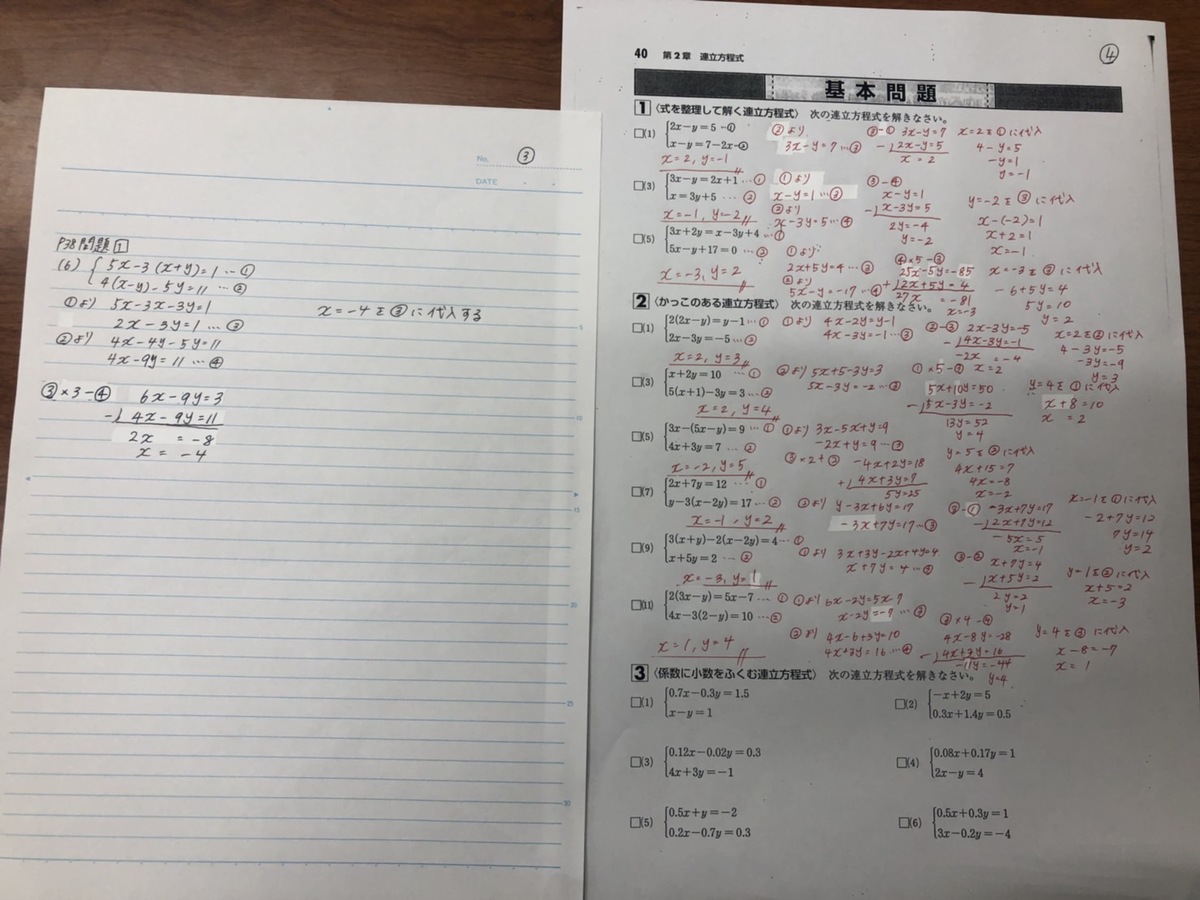 No. ③
DATE
P38問題1
(6) 5x-3(x+y)=1 … ①
4(x-y)-5y=11 … ②
①より 5x-3x-3y=1
2x-3y=1 … ③
②より 4x-4y-5y=11
4x-9y=11 … ④
x=-4を③に代入する
③×3-④ 6x-9y=3
-) 4x-9y=11
2x =-8
x = -4
5
10
15
20
25
30
40 第2章 連立方程式
④
基本問題
1 〈式を整理して解く連立方程式〉 次の連立方程式を解きなさい。
□(1) 2x-y=5 … ①
x-y=7-2x … ②
x=2, y=-1
②より
3x-y=7 … ③
③-① 3x-y=7
-) 2x-y=5
x=2
x=2を①に代入
4-y=5
-y=1
y=-1
□(3) 3x-y=2x+1 … ①
x=3y+5 … ②
x=-1, y=-2
①より
x-y=1 … ③
②より
x-3y=5 … ④
③-④
x-y=1
-) x-3y=5
2y=-4
y=-2
y=-2を③に代入
x-(-2)=1
x+2=1
x=-1
□(5) 3x+2y=x-3y+4 … ①
5x-y+17=0 … ②
x=-3, y=2
①より
2x+5y=4 … ③
②より
5x-y=-17 … ④
④×5-③
25x-5y=-85
+) 2x+5y=4
27x =-81
x=-3
x=-3を③に代入
-6+5y=4
5y=10
y=2
2 〈かっこのある連立方程式〉 次の連立方程式を解きなさい。
□(1) 2(2x-y)=y-1 … ①
2x-3y=-5 … ②
x=2, y=3
①より 4x-2y=y-1
4x-3y=-1 … ③
②-③ 2x-3y=-5
-) 4x-3y=-1
-2x =-4
x=2
x=2を②に代入
4-3y=-5
-3y=-9
y=3
□(3) x+2y=10 … ①
5(x+1)-3y=3 … ②
x=2, y=4
②より 5x+5-3y=3
5x-3y=-2 … ③
①×5-③
5x+10y=50
-) 5x-3y=-2
13y=52
y=4
y=4を①に代入
x+8=10
x = 2
□(5) 3x-(5x-y)=9 … ①
4x+3y=7 … ②
x=-2, y=5
①より 3x-5x+y=9
-2x+y=9 … ③
③×2+② -4x+2y=18
+) 4x+3y=7
5y=25
y=5を②に代入
4x+15=7
4x=-8
x=-2
□(7) 2x+7y=12 … ①
y-3(x-2y)=17 … ②
x=-1, y=2
②より y-3x+6y=17
-3x+7y=17 … ③
③-① -3x+7y=17
-) 2x+7y=12
-5x=5
x=-1
x=-1を①に代入
-2+7y=12
7y=14
y=2
□(9) 3(x+y)-2(x-2y)=4 … ①
x+5y=2 … ②
x=-3, y=1
①より 3x+3y-2x+4y=4
x+7y=4 … ③
③-② x+7y=4
-) x+5y=2
2y=2
y=1
y=1を②に代入
x+5=2
x=-3
□(11) 2(3x-y)=5x-7 … ①
4x-3(2-y)=10 … ②
x=1, y=4
①より 6x-2y=5x-7
x-2y=-7 … ③
②より 4x-6+3y=10
4x+3y=16 … ④
③×4-④
4x-8y=-28
-) 4x+3y=16
-11y=-44
y=4
y=4を③に代入
x-8=-7
x=1
3 〈係数に小数をふくむ連立方程式〉 次の連立方程式を解きなさい。
□(1) 0.7x-0.3y=1.5
x-y=1
□(2) -x+2y=5
0.3x+1.4y=0.5
□(3) 0.12x-0.02y=0.3
4x+3y=-1
□(4) 0.08x+0.17y=1
2x-y=4
□(5) 0.5x+y=-2
0.2x-0.7y=0.3
□(6) 0.5x+0.3y=1
3x-0.2y=-4